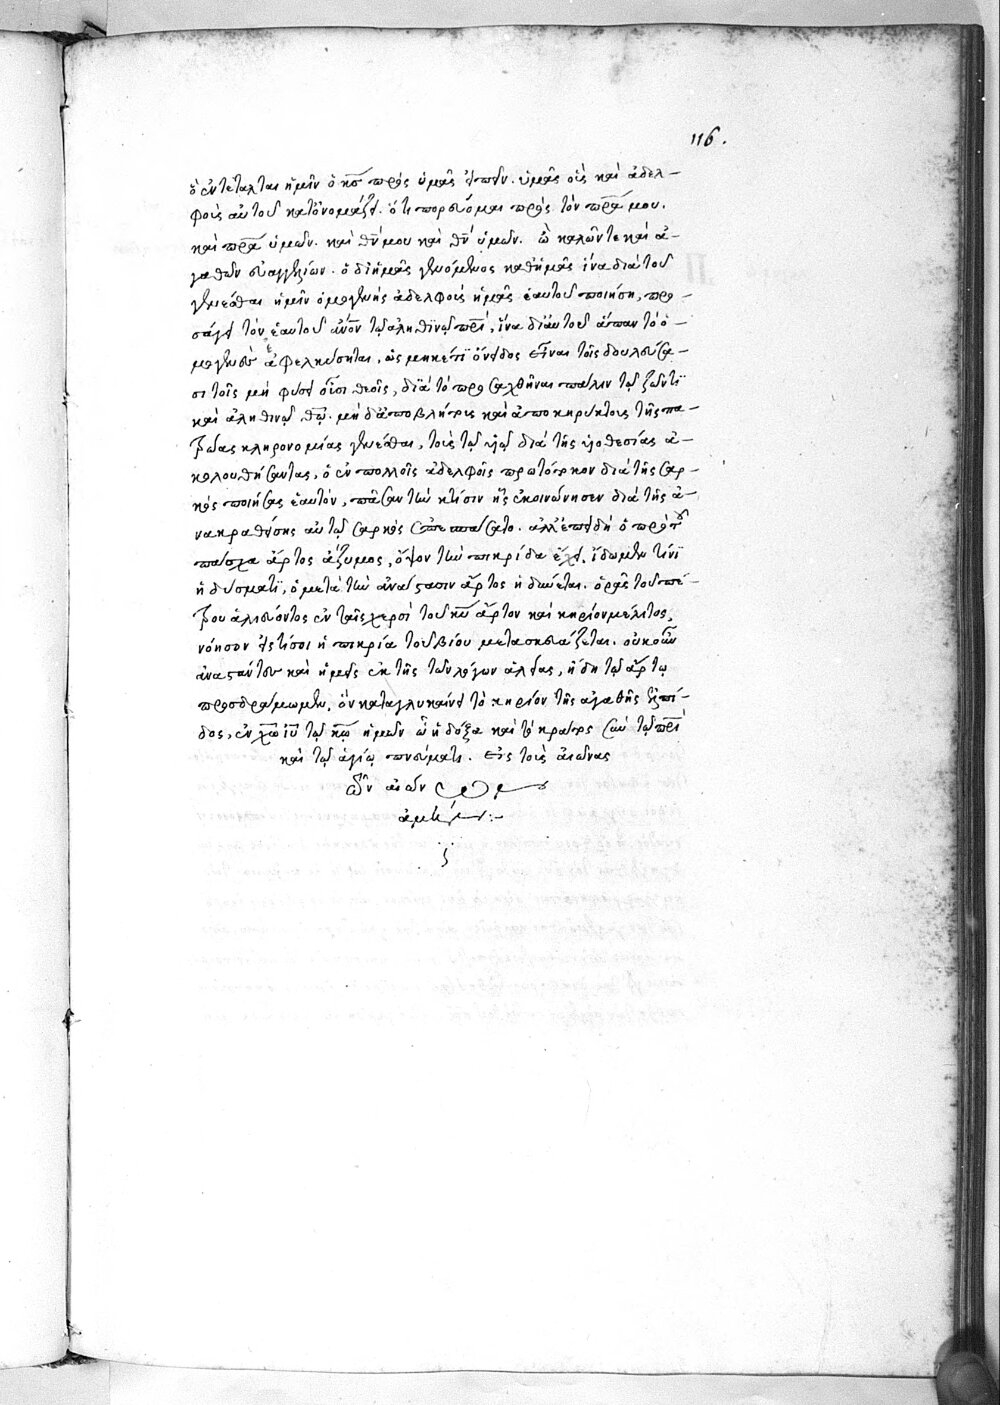 116.
ὃ ἐντέταλται ἡμῖν ὁ κ̅ς̅ πρὸς ὑμᾶς εἰπεῖν. ὑμᾶς οὓς καὶ ἀδελ-
φοὺς αὐτοῦ κατονομάζει. ὅτι πορεύομαι πρὸς τὸν π̅ρ̅α̅ μου.
καὶ π̅ρ̅α̅ ὑμῶν. καὶ θ̅ν̅ μου καὶ θ̅ν̅ ὑμῶν. ὢ καλῶν τε καὶ ἀ-
γαθῶν εὐαγγελίων. ὁ δι' ἡμᾶς γενόμενος καθ' ἡμᾶς ἵνα διὰ τοῦ
γενέσθαι ἡμῖν ὁμογενὴς ἀδελφοὺς ἡμᾶς ἑαυτοῦ ποιήσῃ, προ-
σάγει τὸν ἑαυτοῦ ἄ̅ν̅ο̅ν̅ τῷ ἀληθινῷ π̅ρ̅ὶ̅, ἵνα δι' αὐτοῦ ἅπαν τὸ ὁ-
μογενὲς ἀφελκύσηται, ὡς μηκέτι ὄνειδος εἶναι τοῖς δουλεύσα-
σι τοῖς μὴ φύσει οὖσι θεοῖς, διὰ τὸ προσαχθῆναι πάλιν τῷ ζῶντι
καὶ ἀληθινῷ θ̅ῷ̅. μὴ δ' ἀποβλήτους καὶ ἀποκηρύκτους τῆς πα-
τρῴας κληρονομίας γενέσθαι, τοὺς τῷ υἱῷ διὰ τῆς υἱοθεσίας ἀ-
κολουθήσαντας, ὁ ἐν πολλοῖς ἀδελφοῖς πρωτότοκον διὰ τῆς σαρ-
κὸς ποιήσας ἑαυτὸν, πᾶσαν τὴν κτίσιν ἧς ἐκοινώνησεν διὰ τῆς ἀ-
νακραθείσης αὐτῷ σαρκὸς συνεπεσπάσατο. ἀλλ' ἐπειδὴ ὁ πρὸ τοῦ
πάσχα ἄρτος ἄζυμος, ὄψον τὴν πικρίδα ἔχει, ἴδωμεν τίνι
ἡδύσματι, ὁ μετὰ τὴν ἀνάστασιν ἄρτος ἡδύνεται. ὁρᾷς τοῦ πέ-
τρου ἁλιεύοντος ἐν ταῖς χερσὶ τοῦ κ̅υ̅ ἄρτον καὶ κηρίον μέλιτος,
νόησον εἰς τί σοι ἡ πικρία τοῦ βίου μετασκευάζεται. οὐκοῦν
ἀναστάντες καὶ ἡμεῖς ἐκ τῆς τῶν λόγων ἁλείας, ἤδη τῷ ἄρτῳ
προσδράμωμεν, ὃν καταγλυκαίνει τὸ κηρίον τῆς ἀγαθῆς ἐλπί-
δος, ἐν χ̅ῷ̅ ἰ̅υ̅ τῷ κ̅ῷ̅ ἡμῶν ᾧ ἡ δόξα καὶ τὸ κράτος σὺν τῷ π̅ρ̅ὶ̅
καὶ τῷ ἁγίῳ πνεύματι. εἰς τοὺς αἰῶνας
τῶν αἰώνων
ἀμήν:-